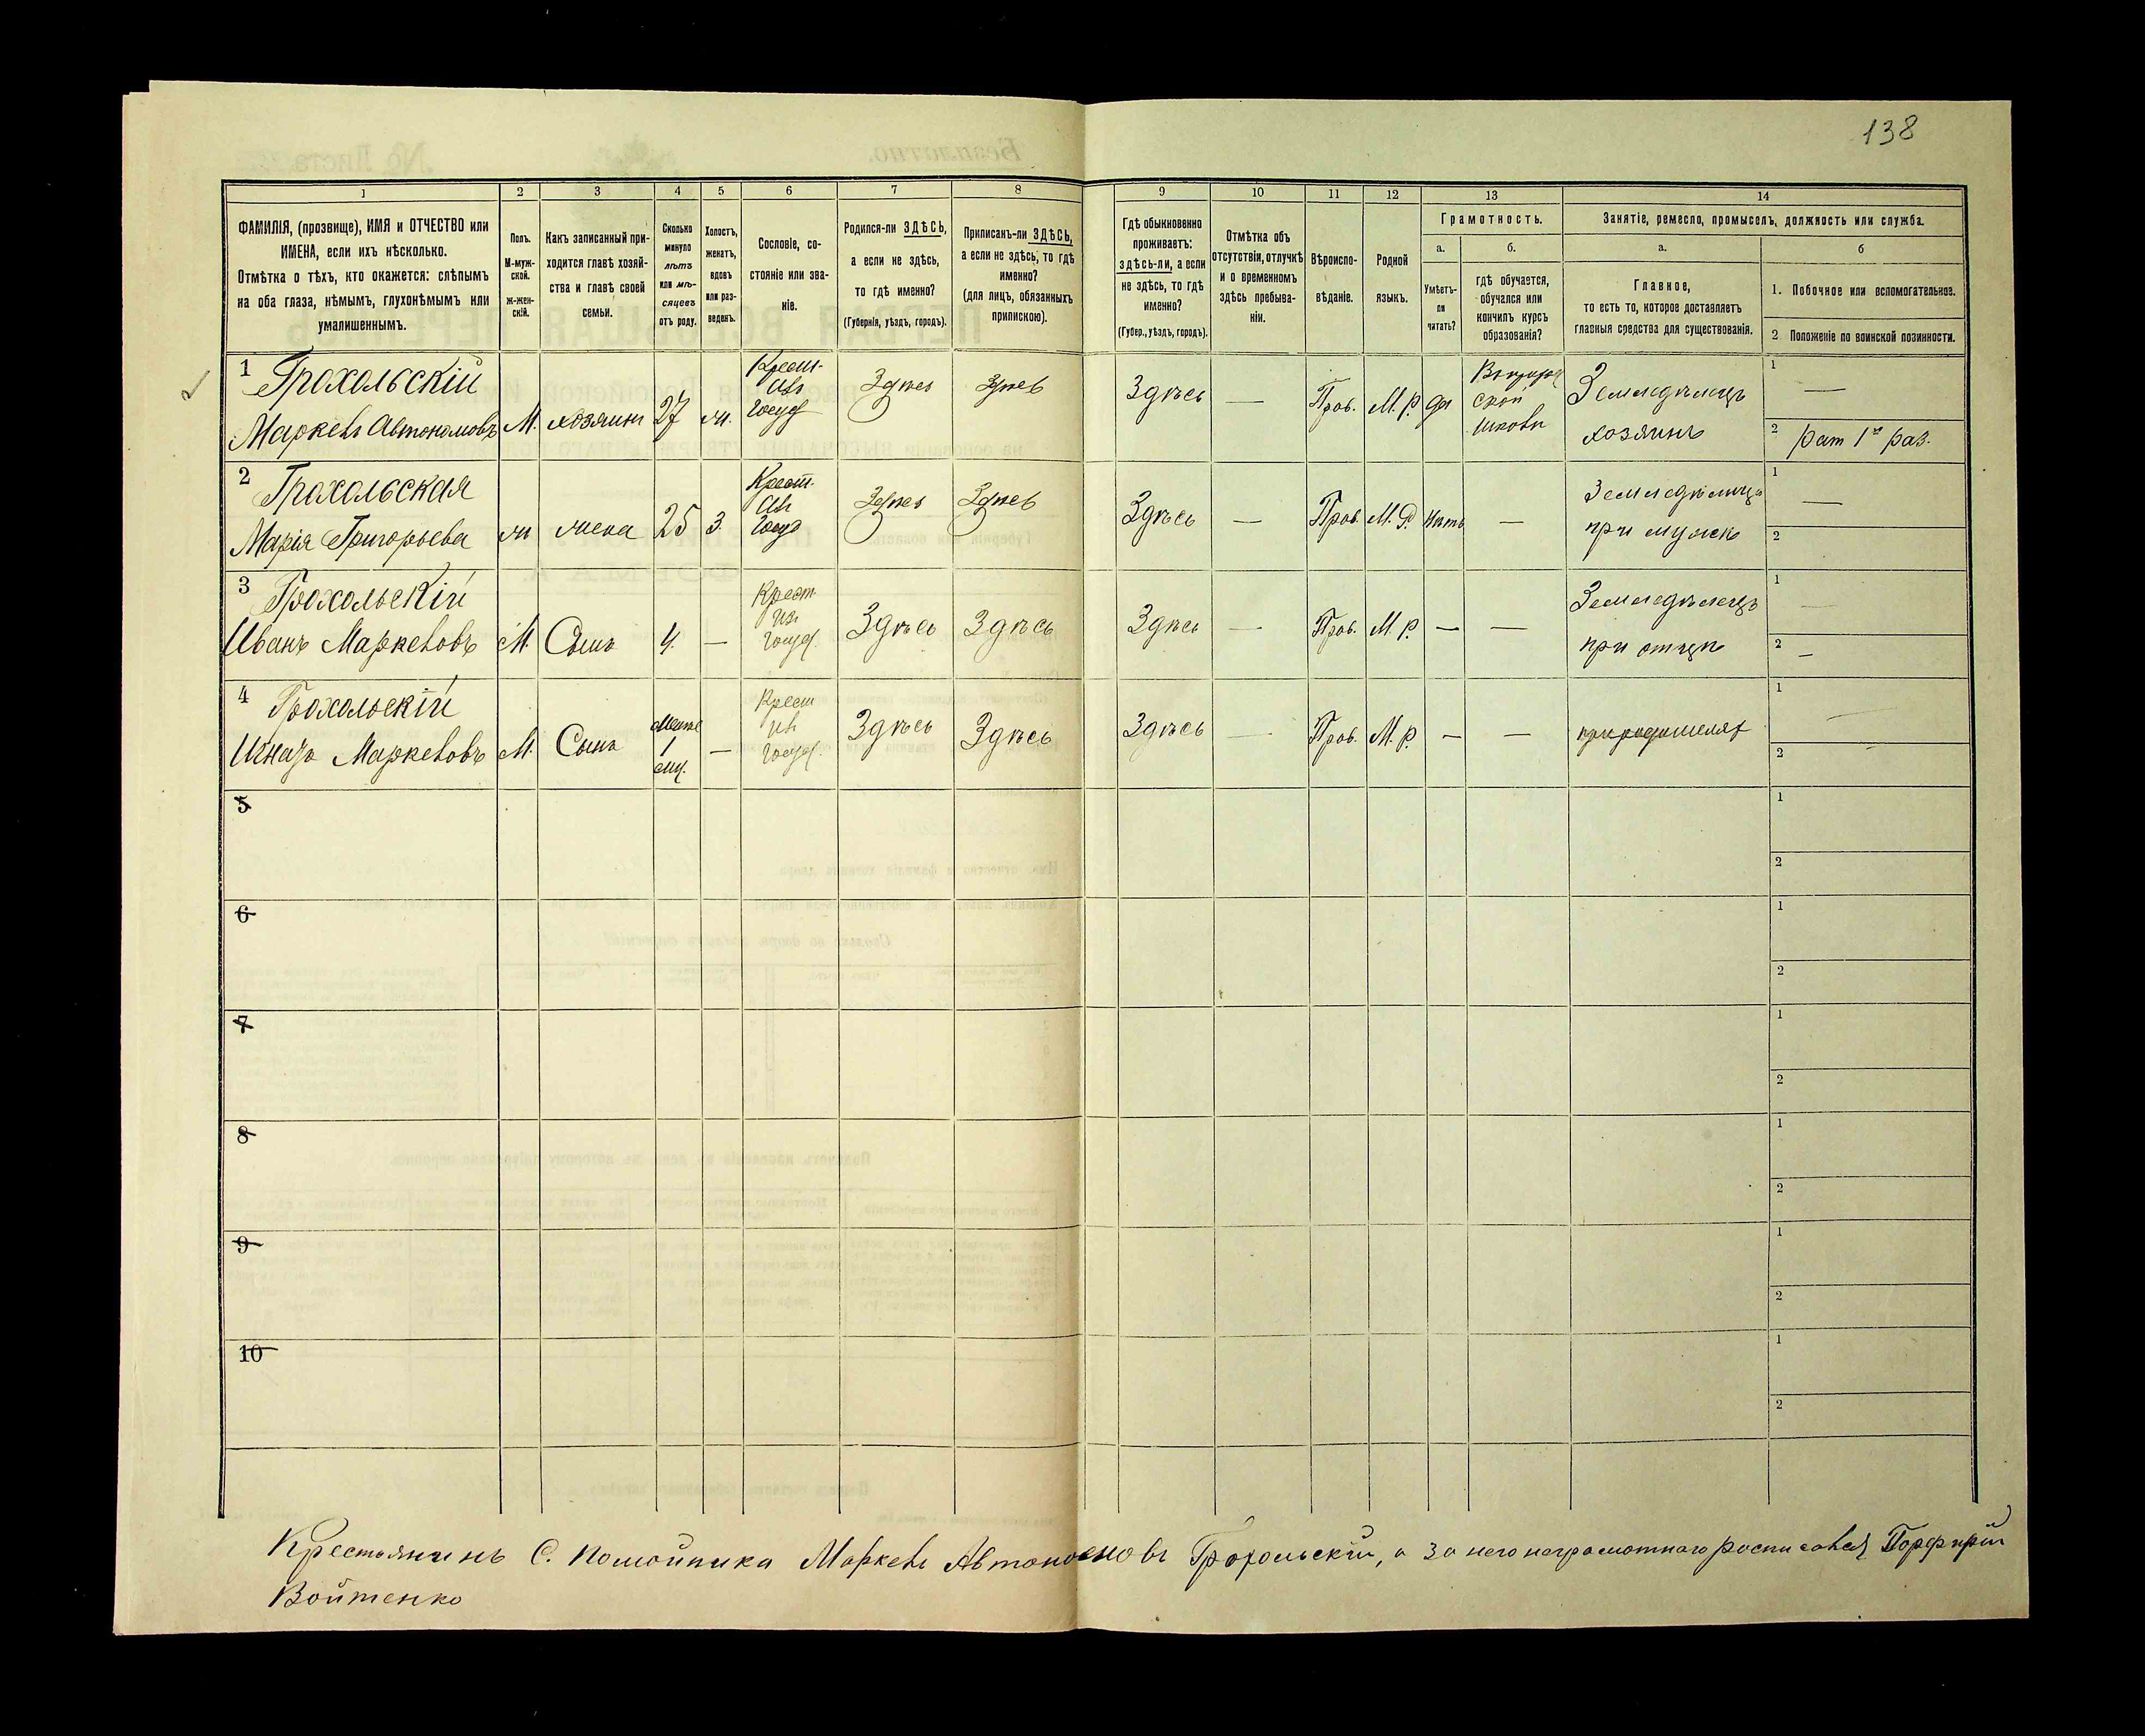 138
1
2
3
4
5
6
7
8
9
10
11
12
13
14
ФАМИЛІЯ, (прозвище), ИМЯ и ОТЧЕСТВО или
ИМЕНА, если ихъ нѣсколько.
Отмѣтка о тѣхъ, кто окажется: слѣпымъ
на оба глаза, нѣмымъ, глухонѣмымъ или
умалишеннымъ.
Полъ.
М-муж-
ской.
ж-жен-
скій.
Какъ записанный при-
ходится главѣ хозяй-
ства и главѣ своей
семьи.
Сколько
минуло
лѣтъ
или мѣ-
сяцевъ
отъ роду.
Холостъ,
женатъ,
вдовъ
или раз-
веденъ.
Сословіе, со-
стояніе или зва-
ніе.
Родился-ли ЗДѢСЬ,
а если не здѣсь,
то гдѣ именно?
(Губернія, уѣздъ, городъ).
Приписанъ-ли ЗДѢСЬ,
а если не здѣсь, то гдѣ
именно?
(для лицъ, обязанныхъ
припискою).
Гдѣ обыкновенно
проживаетъ:
здѣсь-ли, а если
не здѣсь, то гдѣ
именно?
(Губер., уѣздъ, городъ).
Отмѣтка объ
отсутствіи, отлучкѣ
и о временномъ
здѣсь пребыва-
ніи.
Вѣроиспо-
вѣданіе.
Родной
языкъ.
Грамотность.
а.
б.
Умѣетъ-
ли
читать?
гдѣ обучается,
обучался или
кончилъ курсъ
образованія?
Занятіе, ремесло, промыселъ, должность или служба.
а.
б
Главное,
то есть то, которое доставляетъ
главныя средства для существованія.
1. Побочное или вспомогательное.
2 Положеніе по воинской повинности.
1 Грохольскій
Маркелъ Автономовъ М. хозяинъ 27 ж. Крест. изъ госуд. Здѣсь Здѣсь Здѣсь — Прав. М. р. да школѣ Земледѣлецъ хозяинъ
1 —
2 рат 1го раз.
2 Грохольская
Марія Григорьева ж жена 25 З Крест. изъ госуд Здѣсь Здѣсь Здѣсь — Прав. М. Р. Нѣтъ — Земледѣлица при мужѣ
1 —
2
3 Грохольскій
Иванъ Маркеловъ М. Сынъ 4. — Крест изъ госуд. Здѣсь Здѣсь Здѣсь — Прав. М. р. — — Земледѣлецъ при отцѣ
1 —
2 —
4 Грохольскій
Игнатъ Маркеловъ М. Сынъ Менѣе 1 мѣс. — Крест изъ госуд. Здѣсь Здѣсь Здѣсь — Прав. М. р. — — при родителях
1 —
2 —
5
1
2
6
1
2
7
1
2
8
1
2
9
1
2
10
1
2
Крестьянинъ С. Маркелъ Автономовъ Грохольскій, а за него неграмотнаго росписався Порфирій
Войтенко